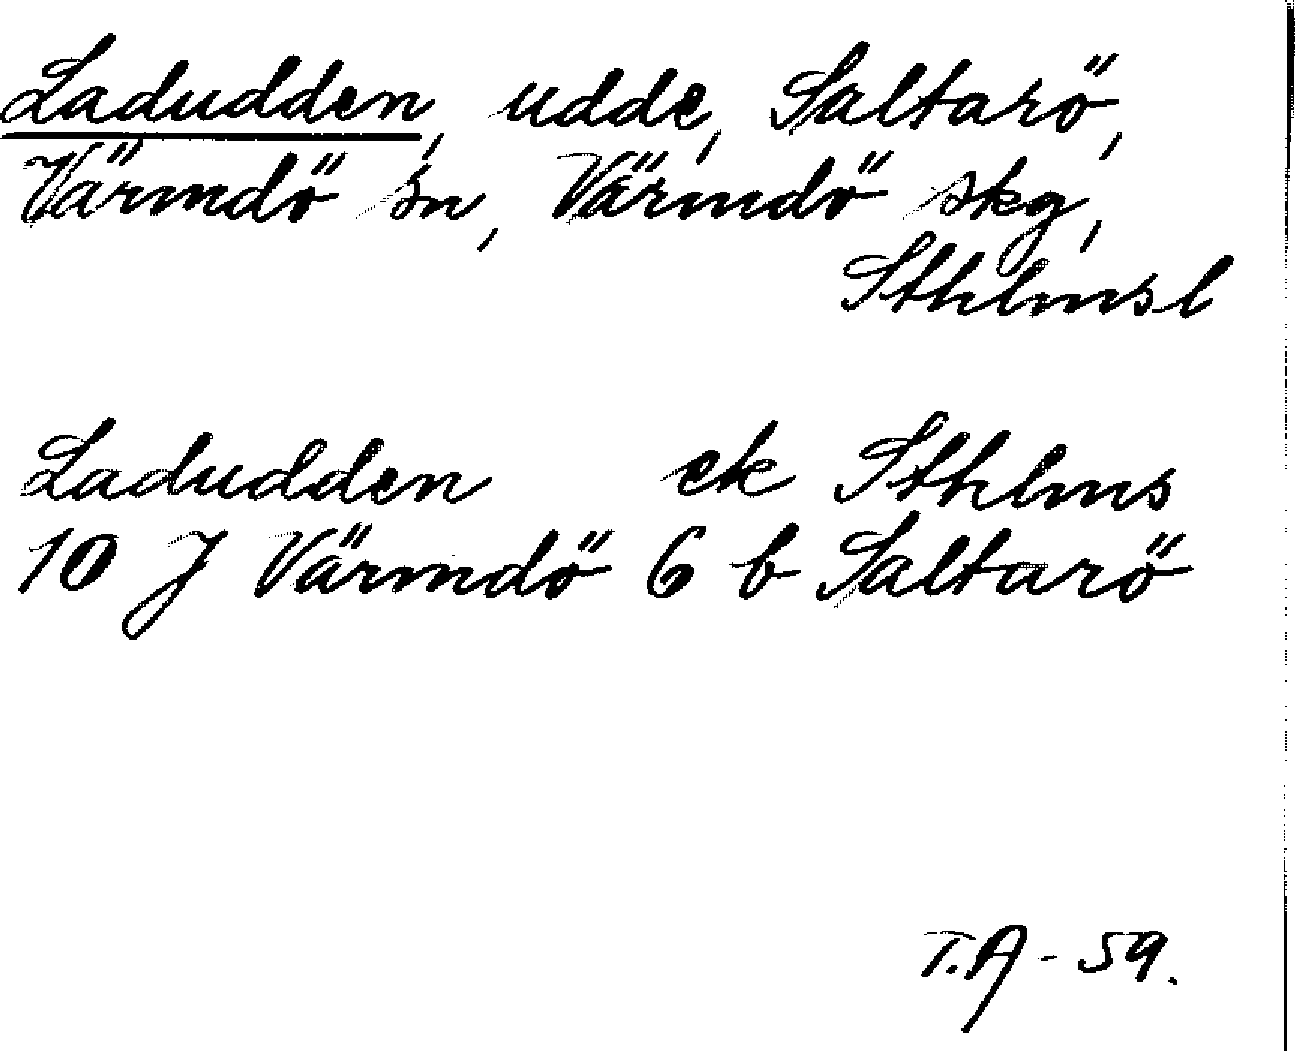 Ladudden, udde, Saltarö,
Värmdö sn, Värmdö skg,
Sthlmsl
Ladudden ek Sthlms
10 J Värmdö 6 b Saltarö
T.A - 59.